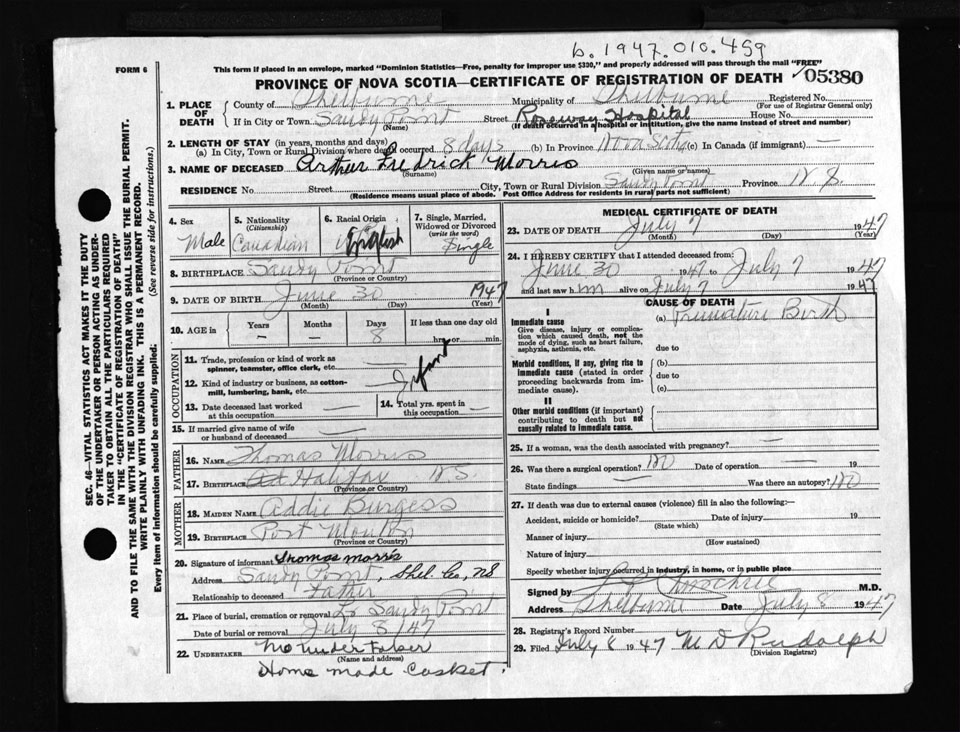 b. 1947.010.459
FORM 6
This form if placed in an envelope, marked "Dominion Statistics—Free, penalty for improper use $300," and properly addressed will pass through the mail "FREE"
PROVINCE OF NOVA SCOTIA—CERTIFICATE OF REGISTRATION OF DEATH 05380
SEC. 46—VITAL STATISTICS ACT MAKES IT THE DUTY
OF THE UNDERTAKER OR PERSON ACTING AS UNDER-
TAKER TO OBTAIN ALL THE PARTICULARS REQUIRED
IN THE "CERTIFICATE OF REGISTRATION OF DEATH"
AND TO FILE THE SAME WITH THE DIVISION REGISTRAR WHO SHALL ISSUE THE BURIAL PERMIT.
WRITE PLAINLY WITH UNFADING INK. THIS IS A PERMANENT RECORD.
Every item of information should be carefully supplied. (See reverse side for instructions.)
1. PLACE OF DEATH
County of Shelburne Municipality of Shelburne Registered No.
(For use of Registrar General only)
If in City or Town Sandy Point Street Roseway Hospital House No.
(Name) (If death occurred in a hospital or institution, give the name instead of street and number)
2. LENGTH OF STAY (in years, months and days)
(a) In City, Town or Rural Division where death occurred 8 days (b) In Province Nova Scotia (c) In Canada (if immigrant) —
3. NAME OF DECEASED Arthur Fredrick Morris
(Surname) (Given name or names)
RESIDENCE No. Street City, Town or Rural Division Sandy Point Province N.S.
(Residence means usual place of abode. Post Office Address for residents in rural parts not sufficient)
4. Sex Male
5. Nationality (Citizenship) Canadian
6. Racial Origin English
7. Single, Married, Widowed or Divorced (write the word) Single
8. BIRTHPLACE Sandy Point
(Province or Country)
9. DATE OF BIRTH June 30 1947
(Month) (Day) (Year)
10. AGE in Years — Months — Days 8 If less than one day old hrs. or min.
OCCUPATION
11. Trade, profession or kind of work as spinner, teamster, office clerk, etc.
Infant
12. Kind of industry or business, as cotton-mill, lumbering, bank, etc.
13. Date deceased last worked at this occupation —
14. Total yrs. spent in this occupation —
15. If married give name of wife or husband of deceased
FATHER
16. NAME Thomas Morris
17. BIRTHPLACE Halifax N.S.
(Province or Country)
MOTHER
18. MAIDEN NAME Addie Burgess
19. BIRTHPLACE Port Mouton
(Province or Country)
20. Signature of informant Thomas Morris
Address Sandy Point, Shel. Co, NS
Relationship to deceased Father
21. Place of burial, cremation or removal Lr Sandy Point
Date of burial or removal July 8/47
22. UNDERTAKER no undertaker
(Name and address)
Home made Casket.
MEDICAL CERTIFICATE OF DEATH
23. DATE OF DEATH July 7 1947
(Month) (Day) (Year)
24. I HEREBY CERTIFY that I attended deceased from:
June 30 1947 to July 7 1947
and last saw him alive on July 7 1947
CAUSE OF DEATH
I
Immediate cause
Give disease, injury or complication which caused death, not the mode of dying, such as heart failure, asphyxia, asthenia, etc.
(a) Premature Birth
due to
Morbid conditions, if any, giving rise to immediate cause (stated in order proceeding backwards from immediate cause).
(b)
due to
(c)
II
Other morbid conditions (if important) contributing to death but not causally related to immediate cause.
25. If a woman, was the death associated with pregnancy? —
26. Was there a surgical operation? No Date of operation — 19
State findings Was there an autopsy? No
27. If death was due to external causes (violence) fill in also the following:—
Accident, suicide or homicide? Date of injury 19
(State which)
Manner of injury
(How sustained)
Nature of injury
Specify whether injury occurred in industry, in home, or in public place
Signed by M.D.
Address Shelburne Date July 8 1947
28. Registrar's Record Number
29. Filed July 8 1947 M D Rudolph
(Division Registrar)